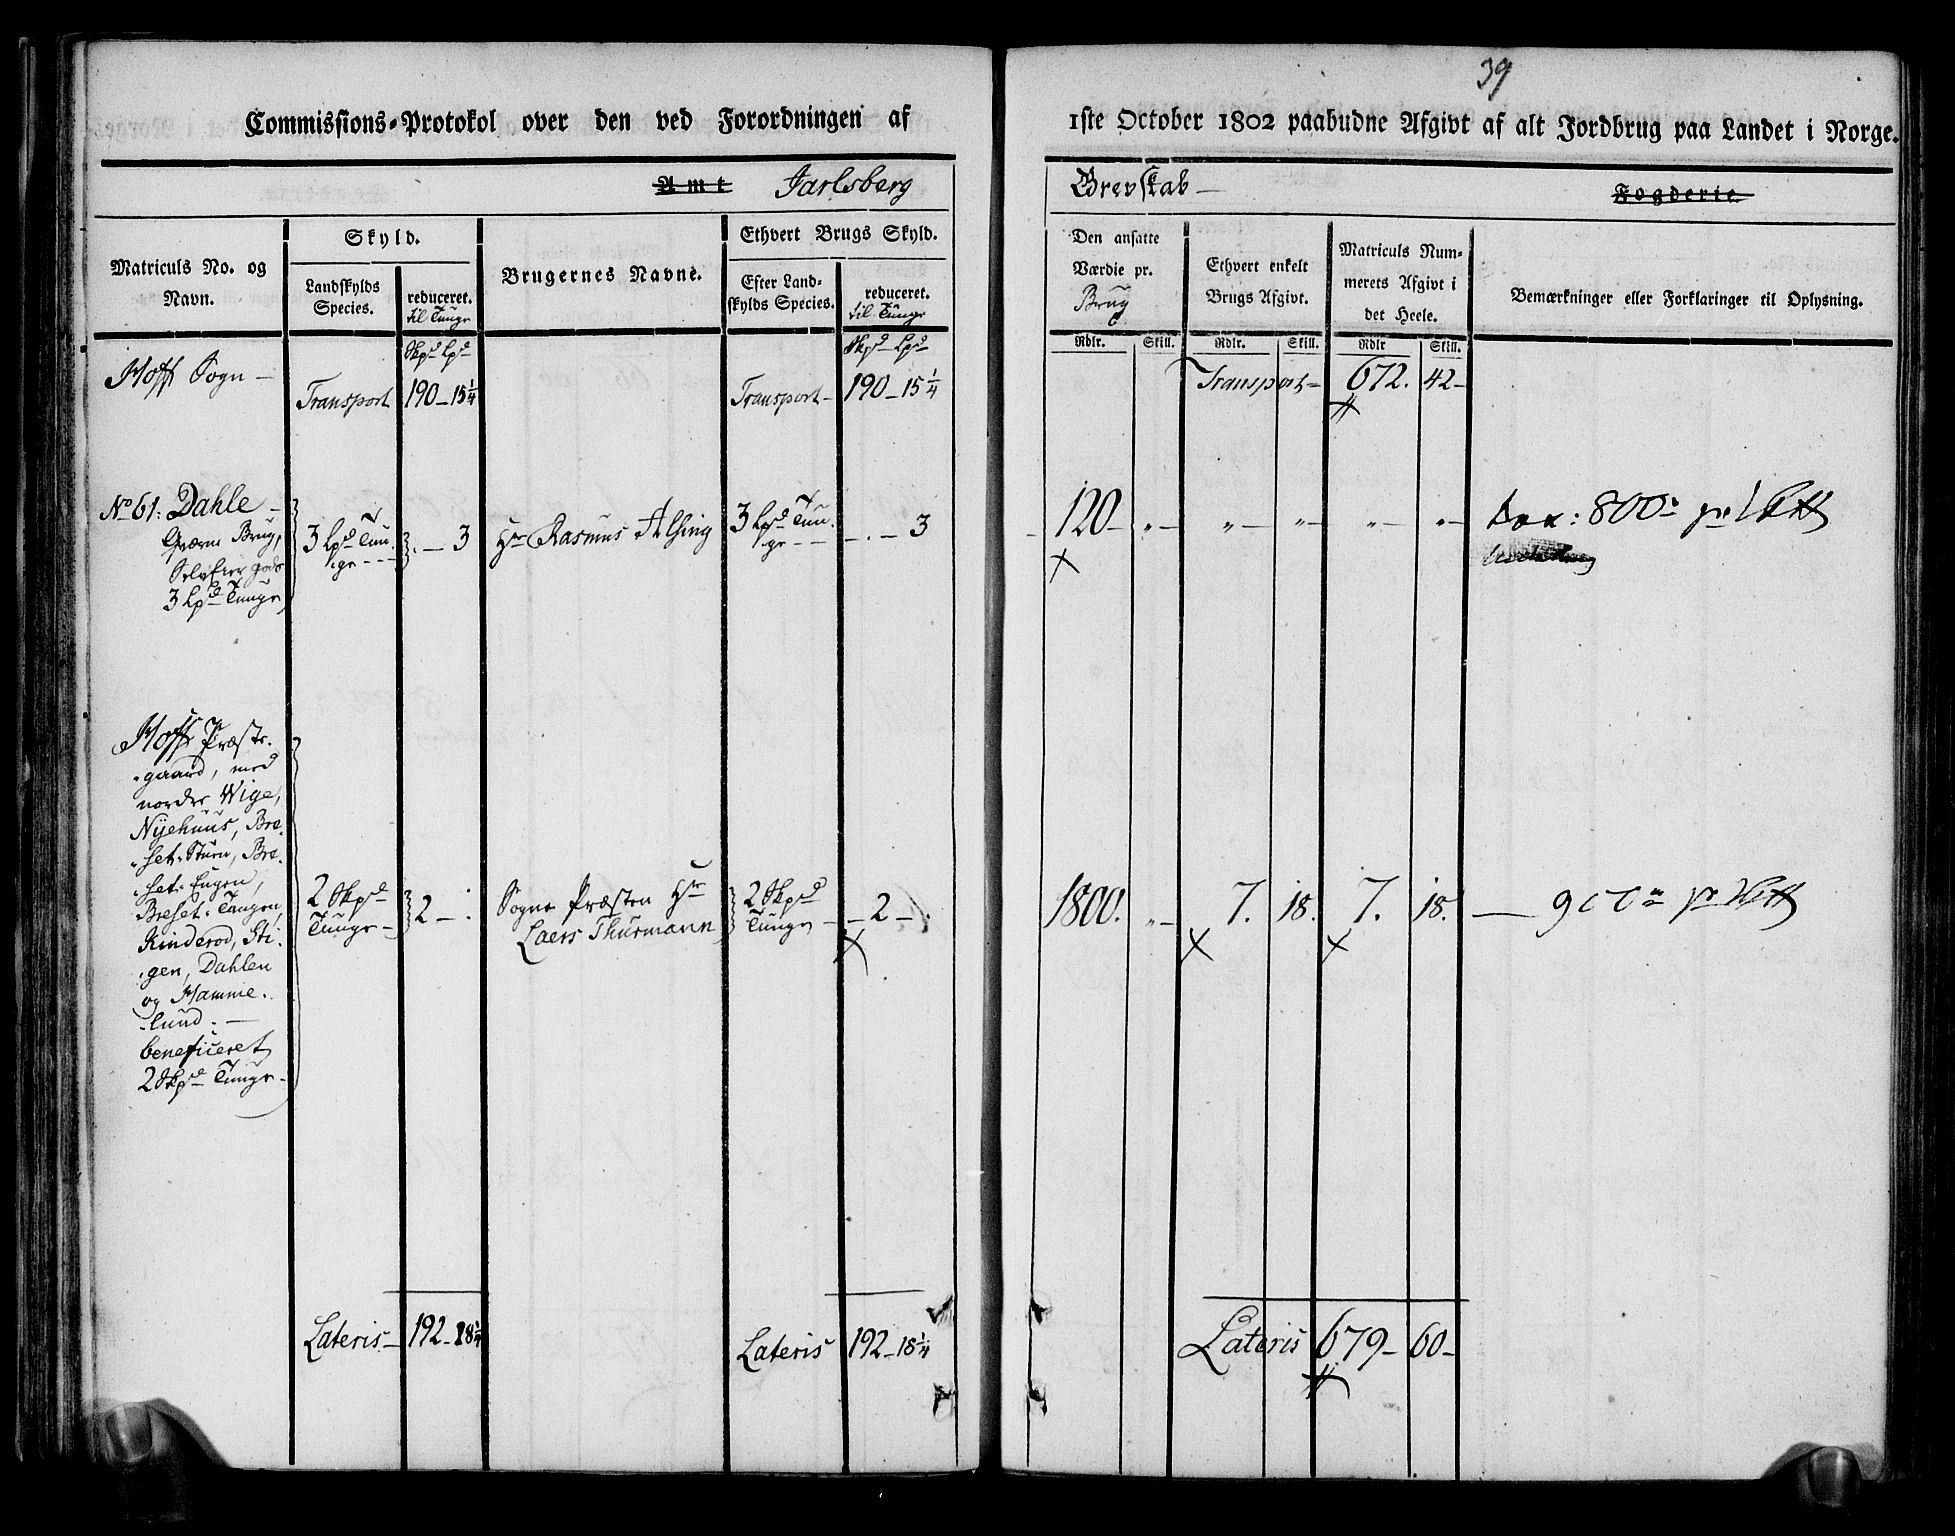 39
Commissions-Protokol over den ved Forordningen af
1ste October 1802 paabudne Afgivt af alt Jordbrug paa Landet i Norge.
Amt Jarlsberg
Grevskab Fogderie
Matriculs No. og
Navn.
Skyld.
Landskylds
Species.
reduceret.
til Tunge
Brugernes Navne.
Ethvert Brugs Skyld.
Efter Land-
skylds Species.
reduceret.
til Tunge
Den ansatte
Værdie pr.
Brug
Ethvert enkelt
Brugs Afgivt.
Matriculs Num-
merets Afgivt i
det Heele.
Bemærkninger eller Forklaringer til Oplysning.
Rdlr. Skill. Rdlr. Skill. Rdlr Skill.
Skpd Lpd Skpd Lpd
Hoff Sogn —
Transport 190 — 15 1/4 Transport — 190 — 15 1/4 Transport — 672. 42 —
No 61. Dahle —
Qværne Brug,
Selveier gods
3 Lpd Tunge
3 Lpd Tun-
ge - - -
. — 3
Hr Rasmus Alsing
3 Lpd Tun-
ge - - -
. — 3
120 — " — " — " — " — " —
800
Hoffs Præste-
gaard, med
nordre Wige,
Nyehuus, Bre-
set-Stuen, Bre-
set-Engen,
Breset-Tangen,
Kinderød, Sti-
gen, Dahlen
og Hamme-
lund. —
beneficeret
2 Skpd Tunge —
2 Skpd
Tunge —
2 — .
Sogne Præsten Hr
Laers Thurmann
2 Skpd
Tunge —
— 2 — .
1800. " — 7. 18. 7. 18. — 900
Lateris — 192 — 18 1/4 Lateris 192 — 18 1/4 Lateris 679 — 60 —